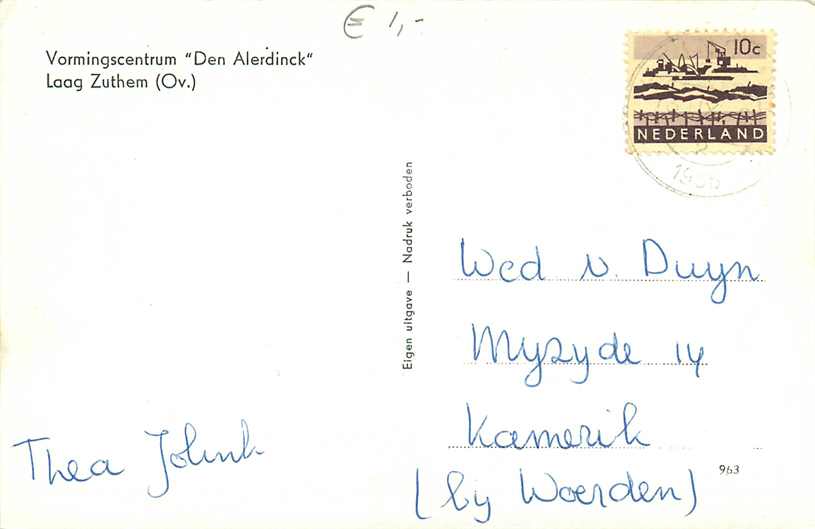 € 1,-
Vormingscentrum "Den Alerdinck"
Laag Zuthem (Ov.)
10c
NEDERLAND
Eigen uitgave — Nadruk verboden
Wed v. Duyn
Myzyde 14
Kamerik
(by Woerden)
Thea
963